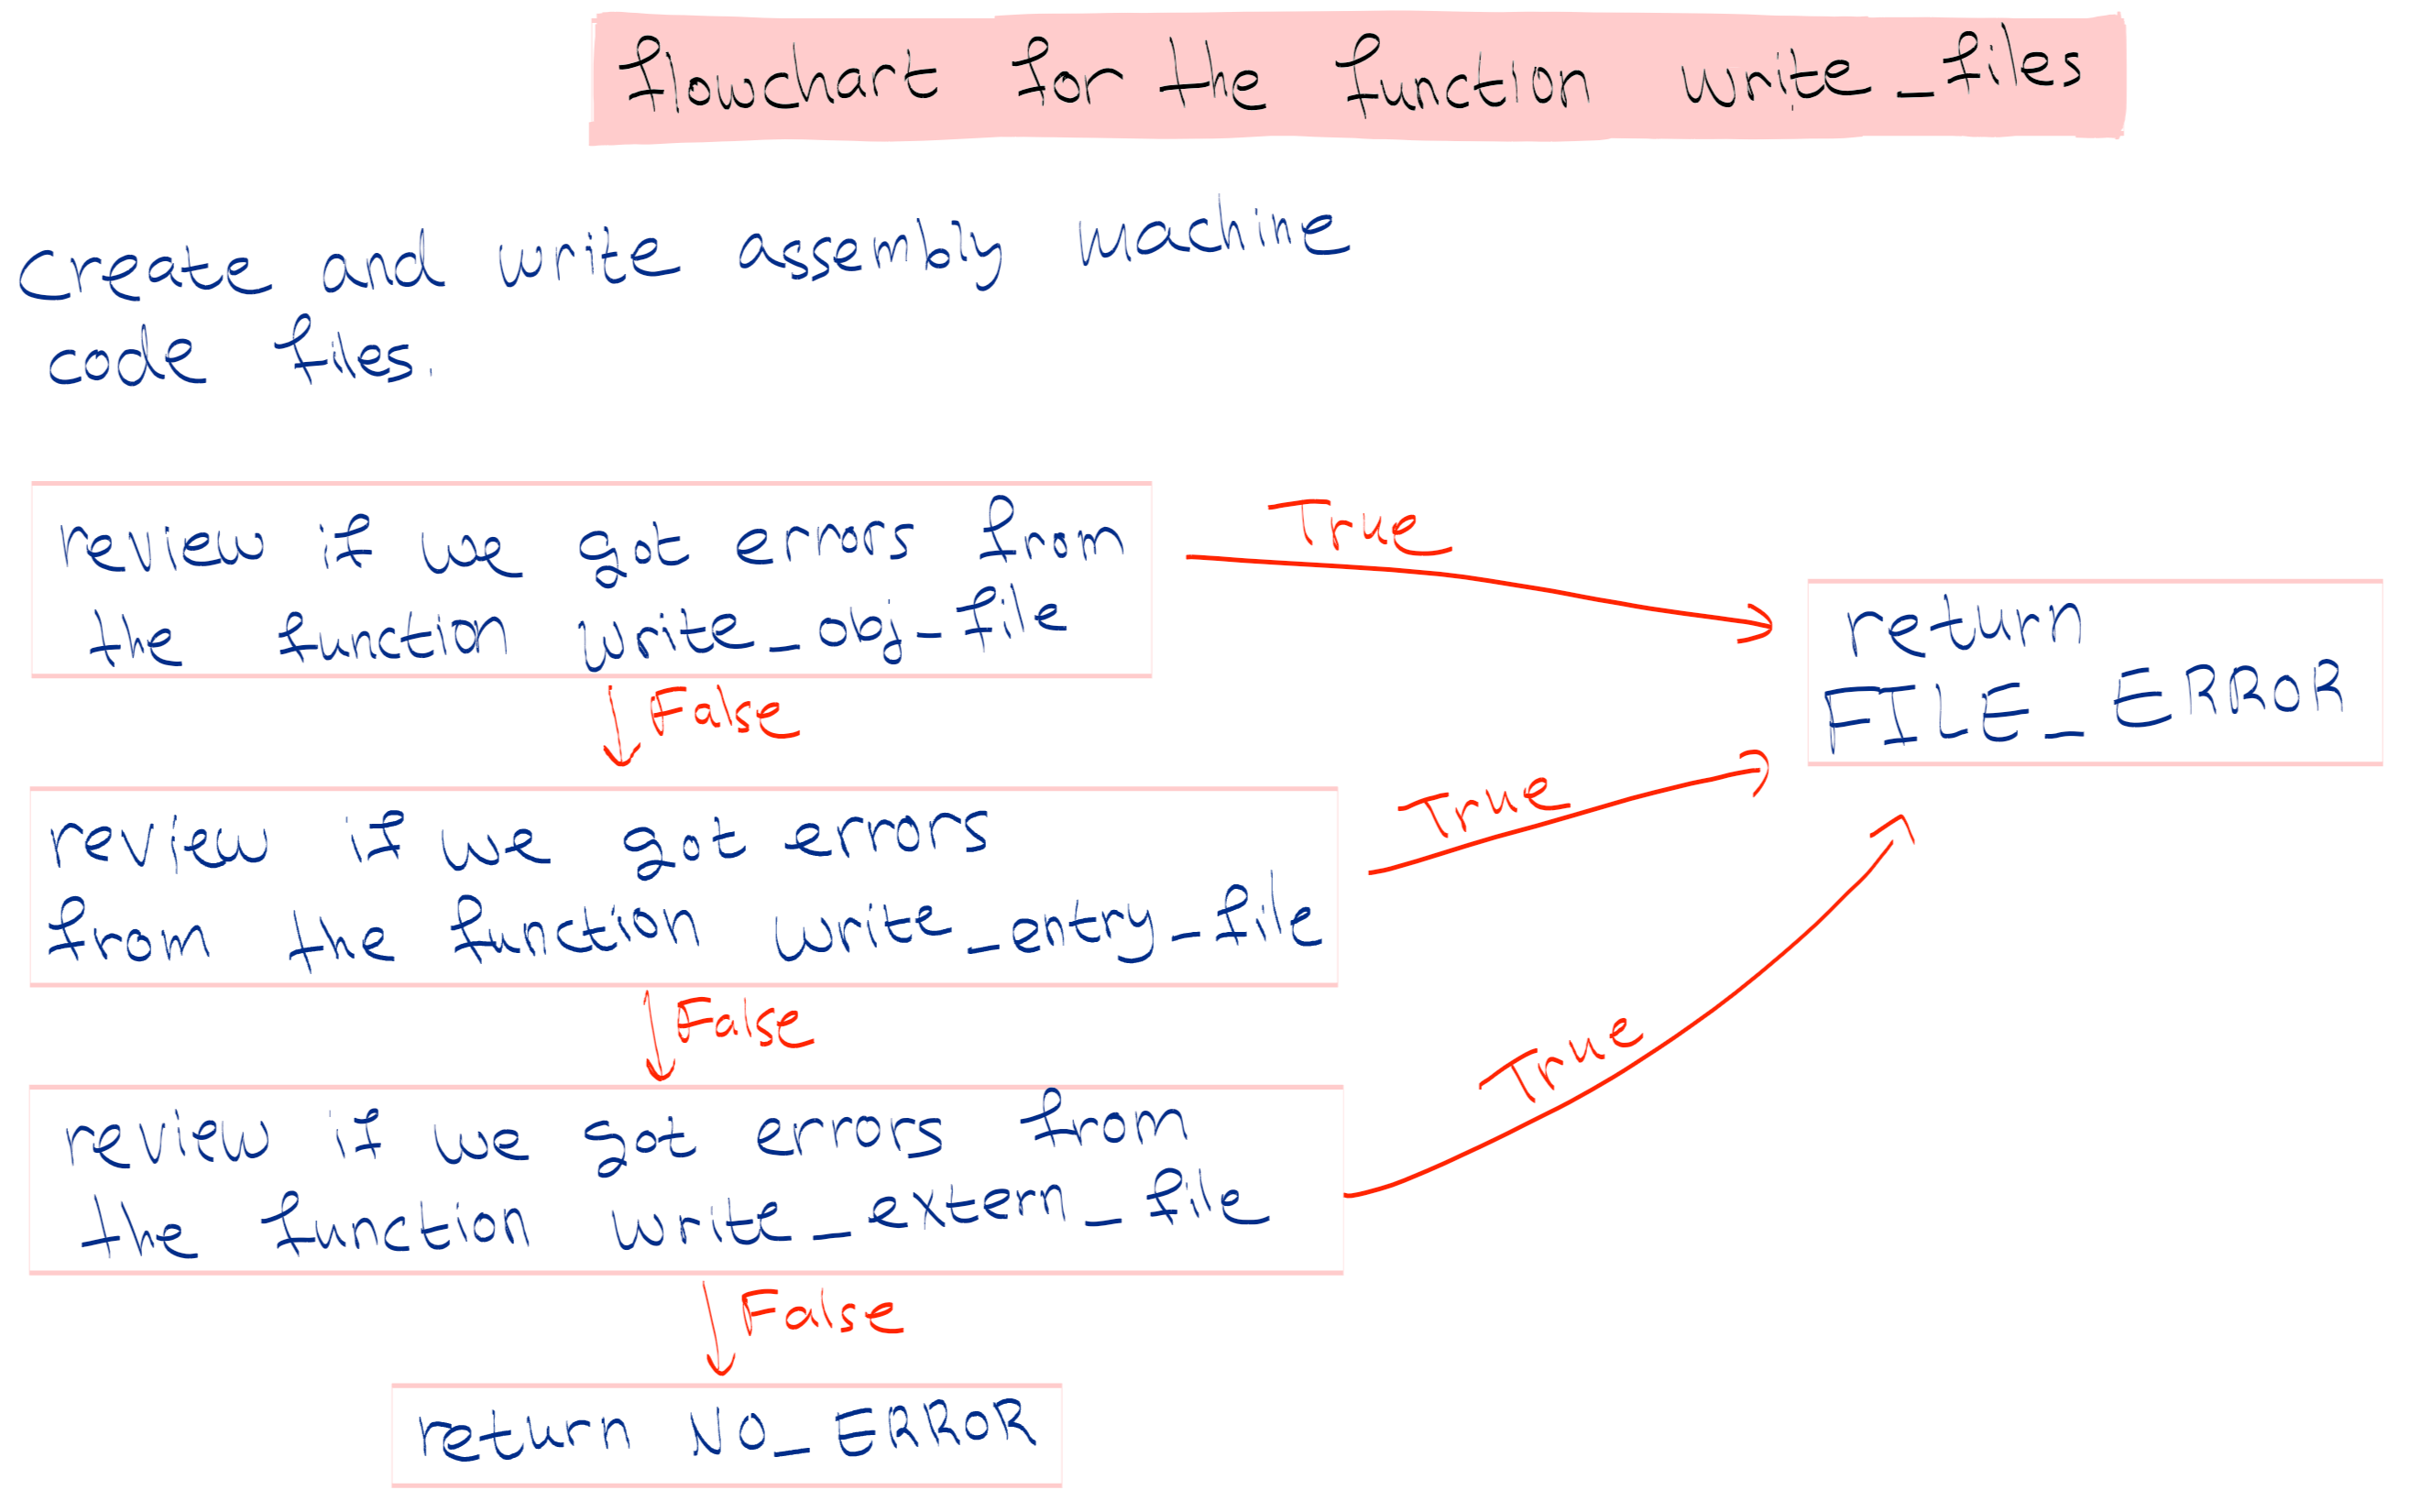 flowchart for the function write_files
Create and write assembly machine
code files.
review if we got errors from
the function write_obj_file
True
return
FILE_ERROR
False
review if we got errors
from the function write_entry_file
True
False
review if we got errors from
the function write_extern_file
True
False
return NO_ERROR